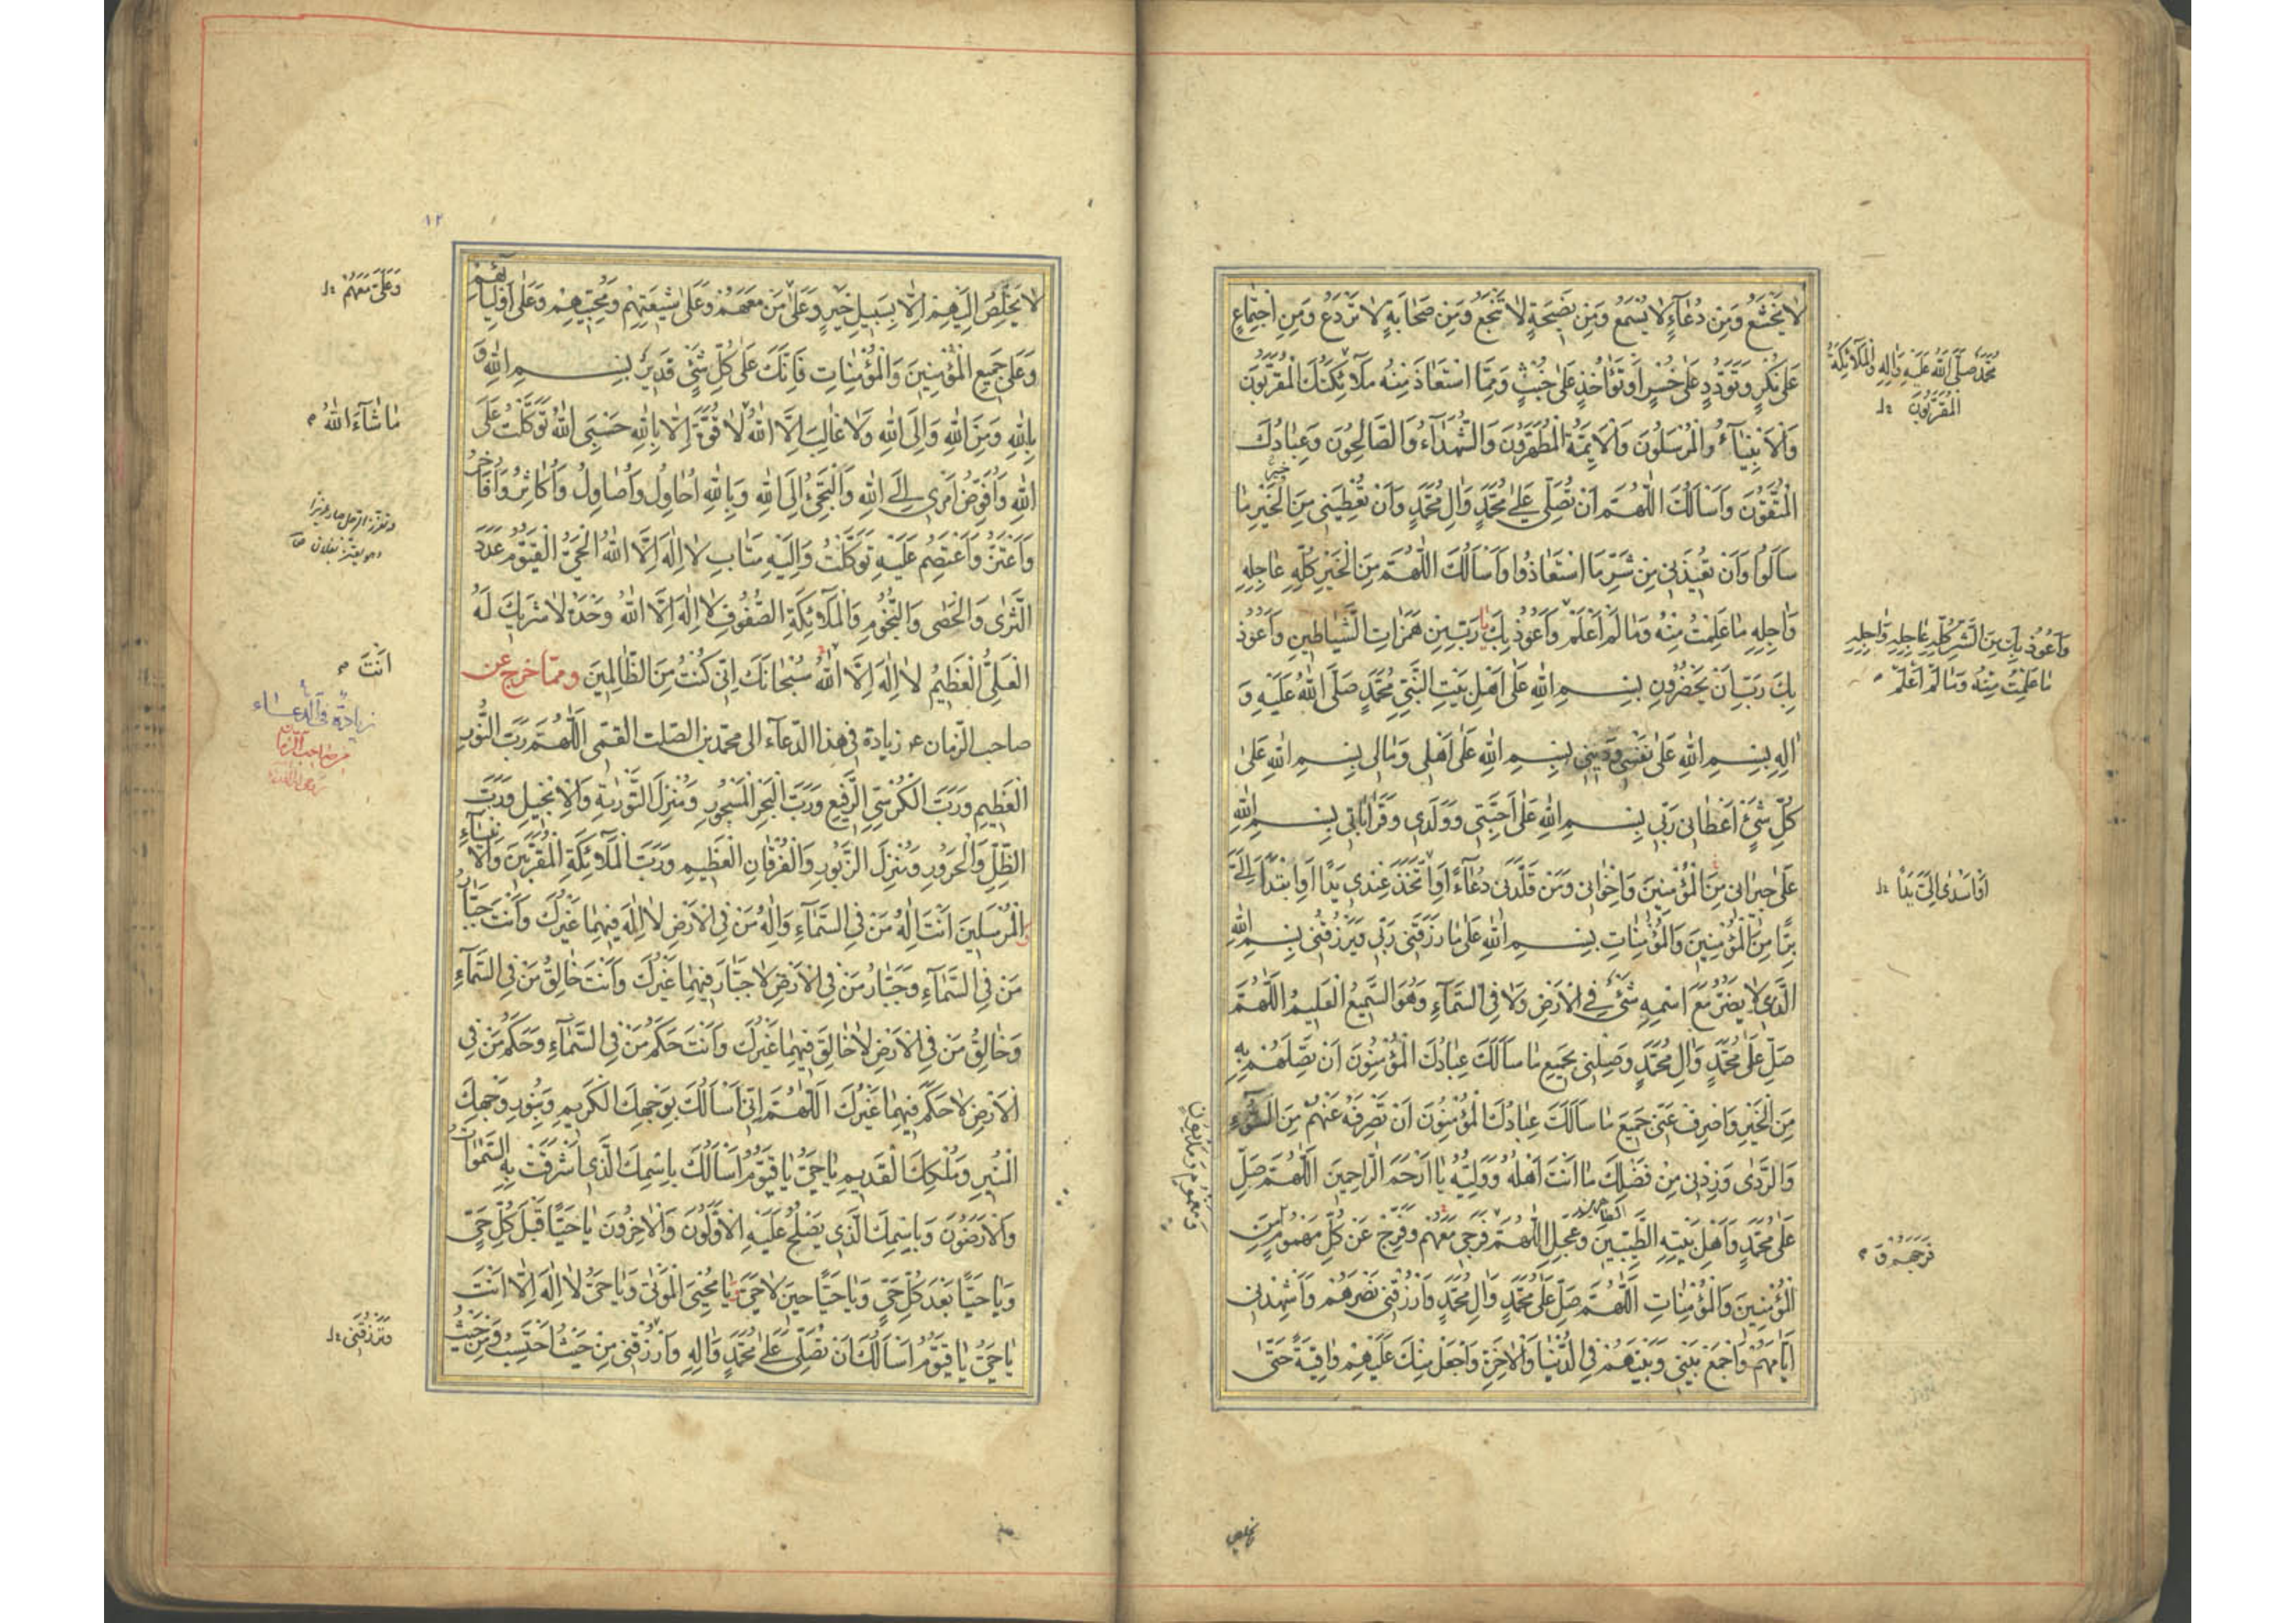 لا يَخْشَعُ وَمِنْ دُعَاءٍ لا يُسْمَعُ وَمِنْ نَصِيحَةٍ لا تَنْجَعُ وَمِنْ صَحَابَةٍ لا تَرْدَعُ وَمِنِ اجْتِمَاعٍ
عَلى نُكْرٍ وَتَوَدُّدٍ عَلى خُسْرٍ اَوْ تَؤَاخُذٍ عَلى خُبْثٍ وَمِمَّا اسْتَعَاذَ مِنْهُ مَلآئِكَتُكَ الْمُقَرَّبُونَ
وَالْاَنْبِيَآءُ وَالْمُرْسَلُونَ وَالْاَئِمَّةُ الْمُطَهَّرُونَ وَالشُّهَدَاءُ وَالصَّالِحُونَ وَعِبَادُكَ
الْمُتَّقُونَ وَاَسْاَلُكَ اللّٰهُمَّ اَنْ تُصَلِّيَ عَلىٰ مُحَمَّدٍ وَالِ مُحَمَّدٍ وَاَنْ تُعْطِيَنِى مِنَ الْخَيْرِ مَا
سَاَلُوا وَاَنْ تُعِيذَنِى مِنْ شَرِّ مَا اسْتَعَاذُوا وَاَسْاَلُكَ اللّٰهُمَّ مِنَ الْخَيْرِ كُلِّهِ عَاجِلِهِ
وَاٰجِلِهِ مَا عَلِمْتُ مِنْهُ وَمَا لَمْ اَعْلَمْ وَاَعُوذُ بِكَ يا رَبِّ مِنْ هَمَزَاتِ الشَّيَاطِينِ وَاَعُوذُ
بِكَ رَبِّ اَنْ يَحْضُرُونِ بِسْمِ اللّٰهِ عَلى اَهْلِ بَيْتِ النَّبِيِّ مُحَمَّدٍ صَلَّى اللّٰهُ عَلَيْهِ وَ
اٰلِهِ بِسْمِ اللّٰهِ عَلى نَفْسِى وَدِينِى بِسْمِ اللّٰهِ عَلى اَهْلِى وَمَالِى بِسْمِ اللّٰهِ عَلىٰ
كُلِّ شَيْءٍ اَعْطَانِى رَبِّى بِسْمِ اللّٰهِ عَلى اَحِبَّتِى وَوَلَدِى وَقَرَابَاتِى بِسْمِ اللّٰهِ
عَلى جِيرَانِى مِنَ الْمُؤْمِنِينَ وَاِخْوَانِى وَمَنْ قَلَّدَنِى دُعَآءً اَوِ اتَّخَذَ عِنْدِى يَدًا اَوِ ابْتَدَاَ اِلَىَّ
بِرًّا مِنَ الْمُؤْمِنِينَ وَالْمُؤْمِنَاتِ بِسْمِ اللّٰهِ عَلى مَا رَزَقَنِى رَبِّى وَيَرْزُقُنِى بِسْمِ اللّٰهِ
الَّذِى لا يَضُرُّ مَعَ اسْمِهِ شَيْءٌ فِى الْاَرْضِ وَلا فِى السَّمَآءِ وَهُوَ السَّمِيعُ الْعَلِيمُ اَللّٰهُمَّ
صَلِّ عَلى مُحَمَّدٍ وَالِ مُحَمَّدٍ وَصِلْنِى بِجَمِيعِ مَا سَاَلَكَ عِبَادُكَ الْمُؤْمِنُونَ اَنْ تَصِلَهُمْ بِهِ
مِنَ الْخَيْرِ وَاصْرِفْ عَنِّى جَمِيعَ مَا سَاَلَكَ عِبَادُكَ الْمُؤْمِنُونَ اَنْ تَصْرِفَهُ عَنْهُمْ مِنَ السُّوءِ
وَالرَّدٰى وَزِدْنِى مِنْ فَضْلِكَ مَا اَنْتَ اَهْلُهُ وَوَلِيُّهُ يَا اَرْحَمَ الرَّاحِمِينَ اَللّٰهُمَّ صَلِّ
عَلى مُحَمَّدٍ وَاَهْلِ بَيْتِهِ الطَّيِّبِينَ الطاهرين وَعَجِّلِ اللّٰهُمَّ فَرَجِى مَعَهُمْ وَفَرِّجْ عَنْ كُلِّ مَهْمُومٍ مِنَ
الْمُؤْمِنِينَ وَالْمُؤْمِنَاتِ اَللّٰهُمَّ صَلِّ عَلى مُحَمَّدٍ وَالِ مُحَمَّدٍ وَارْزُقْنِى نَصْرَهُمْ وَاَشْهِدْنِى
اَيَّامَهُمْ وَاجْمَعْ بَيْنِى وَبَيْنَهُمْ فِى الدُّنْيَا وَالْاٰخِرَةِ وَاجْعَلْ مِنْكَ عَلَيْهِمْ وَاقِيَةً حَتّىٰ
مُحَمَّد صَلَّى اللّٰهُ عَلَيْهِ وَاٰلِهِ وَالْمَلآئِكَةُ
الْمُقَرَّبُونَ
وَاَعُوذُ بِكَ مِنَ الشَّرِّ كُلِّهِ عَاجِلِهِ وَاٰجِلِهِ
مَا عَلِمْتُ مِنْهُ وَمَا لَمْ اَعْلَمْ
اَوْ اَسْدٰى اِلَىَّ يَدًا
فَرَجَهُمْ
١٢
لا يَخْلُصُ اِلَيْهِمْ اِلّا بِسَبِيلِ خَيْرٍ وَعَلى مَنْ مَعَهُمْ وَعَلى شِيعَتِهِمْ وَمُحِبِّيهِمْ وَعَلى اَوْلِيَائِهِمْ
وَعَلى جَمِيعِ الْمُؤْمِنِينَ وَالْمُؤْمِنَاتِ فَاِنَّكَ عَلى كُلِّ شَيْءٍ قَدِيرٌ بِسْمِ اللّٰهِ وَ
بِاللّٰهِ وَمِنَ اللّٰهِ وَاِلَى اللّٰهِ وَلا غَالِبَ اِلَّا اللّٰهُ لا قُوَّةَ اِلّا بِاللّٰهِ حَسْبِىَ اللّٰهُ تَوَكَّلْتُ عَلَى
اللّٰهِ وَاُفَوِّضُ اَمْرِى اِلَى اللّٰهِ وَاَلْتَجِئُ اِلَى اللّٰهِ وَبِاللّٰهِ اُحَاوِلُ وَاُصَاوِلُ وَاُكَاثِرُ وَاُفَاخِرُ
وَاَعْتَزُّ وَاَعْتَصِمُ عَلَيْهِ تَوَكَّلْتُ وَاِلَيْهِ مَتَابِ لا اِلٰهَ اِلَّا اللّٰهُ الْحَيُّ الْقَيُّومُ عَدَدَ
الثَّرٰى وَالْحَصٰى وَالنُّجُومِ وَالْمَلآئِكَةِ الصُّفُوفِ لا اِلٰهَ اِلَّا اللّٰهُ وَحْدَهُ لا شَرِيكَ لَهُ
الْعَلِيُّ الْعَظِيمُ لا اِلٰهَ اِلَّا اللّٰهُ سُبْحَانَكَ اِنِّى كُنْتُ مِنَ الظَّالِمِينَ ومما خرج عن
صاحب الزّمان ع زيادة فى هذا الدّعآء الى محمّد بن الصّلت القمّى اَللّٰهُمَّ رَبَّ النُّورِ
الْعَظِيمِ وَرَبَّ الْكُرْسِيِّ الرَّفِيعِ وَرَبَّ الْبَحْرِ الْمَسْجُورِ وَمُنْزِلَ التَّوْرٰيةِ وَالْاِنْجِيلِ وَرَبَّ
الظِّلِّ وَالْحَرُورِ وَمُنْزِلَ الزَّبُورِ وَالْفُرْقَانِ الْعَظِيمِ وَرَبَّ الْمَلآئِكَةِ الْمُقَرَّبِينَ وَالْاَنْبِيَآءِ
وَالْمُرْسَلِينَ اَنْتَ اِلٰهُ مَنْ فِى السَّمَآءِ وَاِلٰهُ مَنْ فِى الْاَرْضِ لا اِلٰهَ فِيهِمَا غَيْرُكَ وَاَنْتَ جَبَّارُ
مَنْ فِى السَّمَآءِ وَجَبَّارُ مَنْ فِى الْاَرْضِ لا جَبَّارَ فِيهِمَا غَيْرُكَ وَاَنْتَ خَالِقُ مَنْ فِى السَّمَآءِ
وَخَالِقُ مَنْ فِى الْاَرْضِ لا خَالِقَ فِيهِمَا غَيْرُكَ وَاَنْتَ حَكَمُ مَنْ فِى السَّمَآءِ وَحَكَمُ مَنْ فِى
الْاَرْضِ لا حَكَمَ فِيهِمَا غَيْرُكَ اَللّٰهُمَّ اِنِّى اَسْاَلُكَ بِوَجْهِكَ الْكَرِيمِ وَبِنُورِ وَجْهِكَ
الْمُنِيرِ وَمُلْكِكَ الْقَدِيمِ يَا حَيُّ يَا قَيُّومُ اَسْاَلُكَ بِاسْمِكَ الَّذِى اَشْرَقَتْ بِهِ السَّمٰوَاتُ
وَالْاَرَضُونَ وَبِاسْمِكَ الَّذِى يَصْلُحُ عَلَيْهِ الْاَوَّلُونَ وَالْاٰخِرُونَ يَا حَيًّا قَبْلَ كُلِّ حَيٍّ
وَيَا حَيًّا بَعْدَ كُلِّ حَيٍّ وَيَا حَيًّا حِينَ لا حَيَّ وَيَا مُحْيِيَ الْمَوْتٰى وَيَا حَيُّ لا اِلٰهَ اِلّا اَنْتَ
يَا حَيُّ يَا قَيُّومُ اَسْاَلُكَ اَنْ تُصَلِّيَ عَلى مُحَمَّدٍ وَاٰلِهِ وَارْزُقْنِى مِنْ حَيْثُ اَحْتَسِبُ وَمِنْ حَيْثُ
وَعَلى مَنْ مَعَهُمْ
مَا شَآءَ اللّٰهُ
اَنْتَ
زيادة فى الدعاء
من صاحب الزمان
وَتَرْزُقَنِى